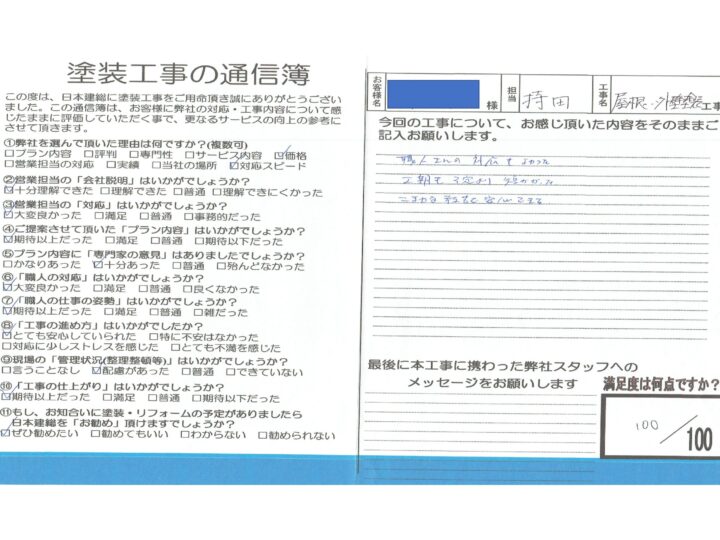 塗装工事の通信簿
この度は、日本建総に塗装工事をご用命頂き誠にありがとうござい
ました。この通信簿は、お客様に弊社の対応・工事内容について感
じたままに評価していただく事で、更なるサービスの向上の参考に
させて頂きます。
①弊社を選んで頂いた理由は何ですか?(複数可)
□プラン内容 □評判 □専門性 □サービス内容 ☑価格
□営業担当の対応 □実績 □当社の場所 ☑対応スピード
②営業担当の「会社説明」はいかがでしょうか?
☑十分理解できた □理解できた □普通 □理解できにくかった
③営業担当の「対応」はいかがでしょうか?
☑大変良かった □満足 □普通 □事務的だった
④ご提案させて頂いた「プラン内容」はいかがでしょうか?
☑期待以上だった □満足 □普通 □期待以下だった
⑤プラン内容に「専門家の意見」はありましたでしょうか?
□かなりあった ☑十分あった □普通 □殆んどなかった
⑥「職人の対応」はいかがでしょうか?
☑大変良かった □満足 □普通 □良くなかった
⑦「職人の仕事の姿勢」はいかがでしょうか?
☑期待以上だった □満足 □普通 □雑だった
⑧「工事の進め方」はいかがでしたか?
☑とても安心していられた □特に不安はなかった
□対応に少しストレスを感じた □とても不満を感じた
⑨現場の「管理状況(整理整頓等)」はいかがでしょうか?
□言うことなし ☑配慮があった □普通 □できていない
⑩「工事の仕上がり」はいかがでしょうか?
☑期待以上だった □満足 □普通 □期待以下だった
⑪もし、お知合いに塗装・リフォームの予定がありましたら
日本建総を「お勧め」頂けますでしょうか?
☑ぜひ勧めたい □勧めてもいい □わからない □勧められない
お客様名 様 担当 持田 工事名 屋根・外壁塗装工事
今回の工事について、お感じ頂いた内容をそのままご
記入お願いします。
職人さんの対応もよかった
工期も予定より
安心できる
最後に本工事に携わった弊社スタッフへの
メッセージをお願いします
満足度は何点ですか?
100/100